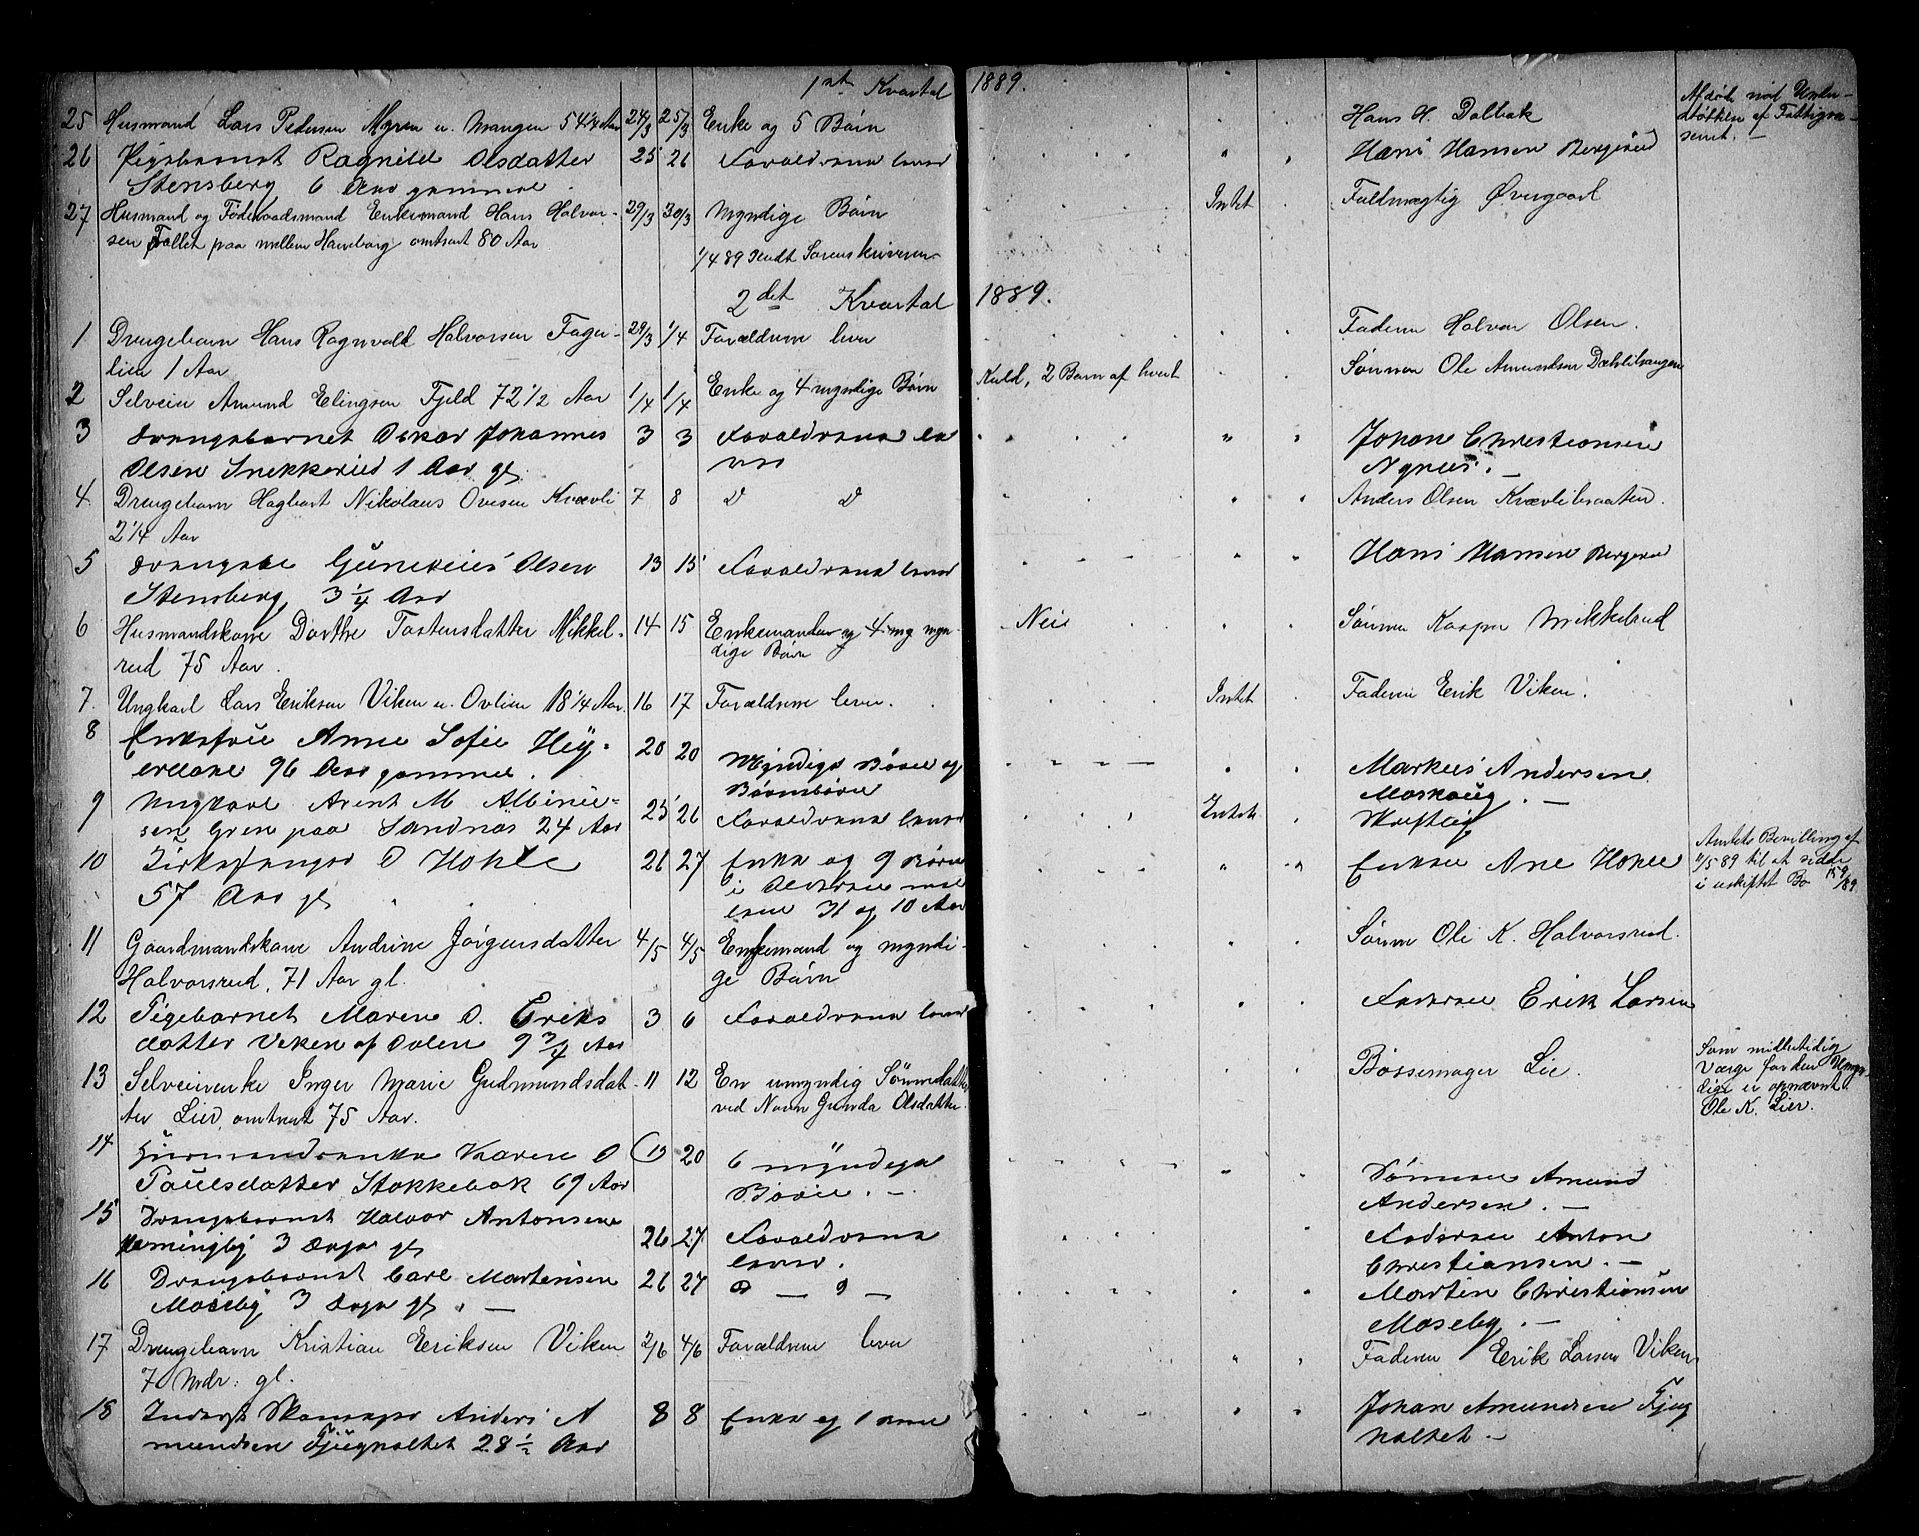 1ste Kvartal 1889.
25 Husmand Lars Pedersen Myren u. Mangen 54 1/4 Aar 24/3 25/3 Enke og 5 Børn Hans H. Dalbak Afdøde nød Under-
støttelse af Fattigvæ-
senet. –
26 Pigebarnet Ragnild Olsdatter 25 26 Forældrene lever " " Hans Hansen Bergerud
Stensberg 6 Aar gammel
27 Husmand og Føderaadsmand Enkemand Hans Halvor- 29/3 30/3 Myndige Børn Intet Fuldmægtig Øvergaard
sen Fallet paa mellem Haneborg omtrent 80 Aar
1/4 89 Sendt Sorenskriveren
2det Kvartal 1889.
1 Drengebarn Hans Ragnvald Halvorsen Fager- 29/3 1/4 Forældrene lever Faderen Halvor Olsen.
lien 1 Aar
2 Selveier Amund Elingsen Fjeld 72 1/2 Aar 1/4 1/4 Enke og 4 myndige Børn Kuld, 2 Børn af hvert Sønnen Ole Amundsen
3 Drengebarnet Oskar Johannes 3 3 Forældrene le " " Johan Christiansen
Olsen Snekkerud 1 Aar gl. ver Nyhus. –
4. Drengebarn Hagbart Nikolaus Ovesen Kvævli 7 8 " " Anders Olsen Kvævlibraaten.
2 1/4 Aar
5 Drengebr Gunerius Olsen 13 15 Forældrene lever " " Hans Hansen Bergerud
Stensberg 3 1/4 Aar
6 Husmandskone Dorthe Tostensdatter Mikkel- 14 15 Enkemanden og 4 myn- Nei Sønnen Kasper Mikkelsrud
rud 75 Aar. dige Børn
7. Ungkarl Lars Eriksen Viken u. Ovlien 18 1/4 Aar. 16 17 Forældrene lever. Intet Faderen Erik Viken.
8 Enkefrue Anne Sofie Hey- 20 20 Myndige Børn og Markus Andersen
erdahl 96 Aar gammel. Børnebørn Moskoug. –
9 Ungkarl Arent M Albinus- 25 26 Forældrene lever Intet
sen Gren paa Sandnæs 24 Aar
10 Kirkesanger O Hokle 26 27 Enke og 9 Børn " " Enken Ane Hokle Amtets Bevilling af
/5 89 til at sidde
57 Aar gl. i Alderen mel i uskiftet Bo
lem 31 og 10 Aar
11 Gaardmandskone Andrine Jørgensdatter 4/5 4/5 Enkemand og myndi- Sønnen Ole K. Halvorsrud.
Halvorsrud, 71 Aar gl. ge Børn
12 Pigebarnet Maren O. Eriks 3 6 Forældrene lever Faderen Erik Larsen
datter Viken af Ovlien 9 3/4 Aar
13 Selveierenke Inger Marie Gudmundsdat- 11 12 En umyndig Sønnedatter Bøssemager Lie. Som midlertidig
Værge for den Umyn-
ter Lier, omtrent 75 Aar. ved Navn Gunda Olsdatter. dige er opnævnt
Ole K. Lier.
14 Husmandsenke Karen O 13 20 6 myndige Sønnen Amund
Poulsdatter Stokkebæk 69 Aar Børn. – Andersen. –
15 Drengebarnet Halvor Antonsen 26 27 Forældrene Faderen Anton
Hemingby 3 Dage gl. lever. Christiansen. –
16 Drengebarnet Carl Martinsen 26 27 D – o – Martin Christiansen
Moseby 3 Dage gl. – Moseby. –
17 Drengebarn Kristian Eriksen Viken 2/6 4/6 Forældrene lever Faderen Erik Larsen Viken
7 Mdr. gl.
18 Inderst Skomager Anders A 8 8 Enke og 1 Barn Johan Amundsen Fjug
mundsen Fjugholtet 28 1/2 Aar holtet –